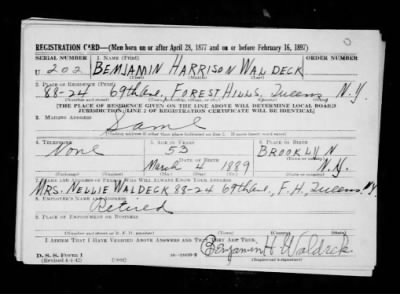 REGISTRATION CARD—(Men born on or after April 28, 1877 and on or before February 16, 1897)
SERIAL NUMBER 1. NAME (Print) ORDER NUMBER
U 202 BENJAMIN HARRISON WALDECK
2. PLACE OF RESIDENCE (Print)
88-24 69th Ave, FOREST HILLS, Queens N.Y.
[THE PLACE OF RESIDENCE GIVEN ON THE LINE ABOVE WILL DETERMINE LOCAL BOARD
JURISDICTION; LINE 2 OF REGISTRATION CERTIFICATE WILL BE IDENTICAL]
3. MAILING ADDRESS
Same
4. TELEPHONE 5. AGE IN YEARS 6. PLACE OF BIRTH
None 53 BROOKLYN
DATE OF BIRTH
March 4 1889 N.Y.
7. NAME AND ADDRESS OF PERSON WHO WILL ALWAYS KNOW YOUR ADDRESS
MRS. NELLIE WALDECK 88-24 69th Ave, F.H, Queens, N.Y.
8. EMPLOYER'S NAME AND ADDRESS
Retired
9. PLACE OF EMPLOYMENT OR BUSINESS
I AFFIRM THAT I HAVE VERIFIED ABOVE ANSWERS AND THAT THEY ARE TRUE.
Benjamin H Waldeck
D. S. S. Form 1
(Revised 4-1-42)